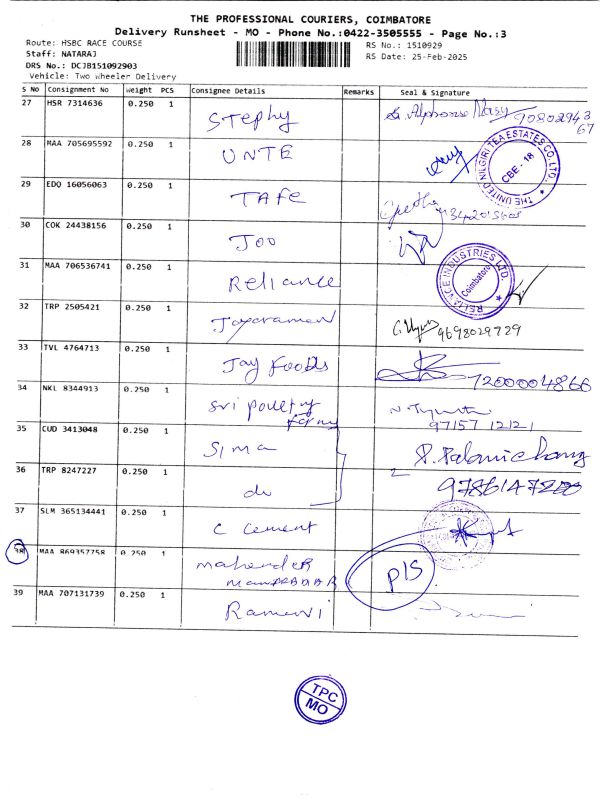 THE PROFESSIONAL COURIERS, COIMBATORE
Delivery Runsheet - MO - Phone No.:0422-3505555 - Page No.:3
Route: HSBC RACE COURSE RS No.: 1510929
Staff: NATARAJ RS Date: 25-Feb-2025
DRS No.: DCJB151092903
Vehicle: Two Wheeler Delivery
S No Consignment No Weight PCS Consignee Details Remarks Seal & Signature
27 HSR 7314636 0.250 1 Stephy
28 MAA 705695592 0.250 1 UNTE
THE UNITED NILGIRI TEA ESTATES CO. LTD. CBE - 18
29 EDQ 16056063 0.250 1 TAFE
30 COK 24438156 0.250 1 JOO
31 MAA 706536741 0.250 1 Reliance
RELIANCE INDUSTRIES LTD. Coimbatore
32 TRP 2505421 0.250 1 Jayaraman 9698029729
33 TVL 4764713 0.250 1 Jay Foods 7200004866
34 NKL 8344913 0.250 1 Sri poultry
97157 12121
35 CUD 3413048 0.250 1 Sima
36 TRP 8247227 0.250 1 do 9786147200
37 SLM 365134441 0.250 1 C cement
38 MAA 869357758 0.250 1 P/S
39 MAA 707131739 0.250 1
TPC
MO